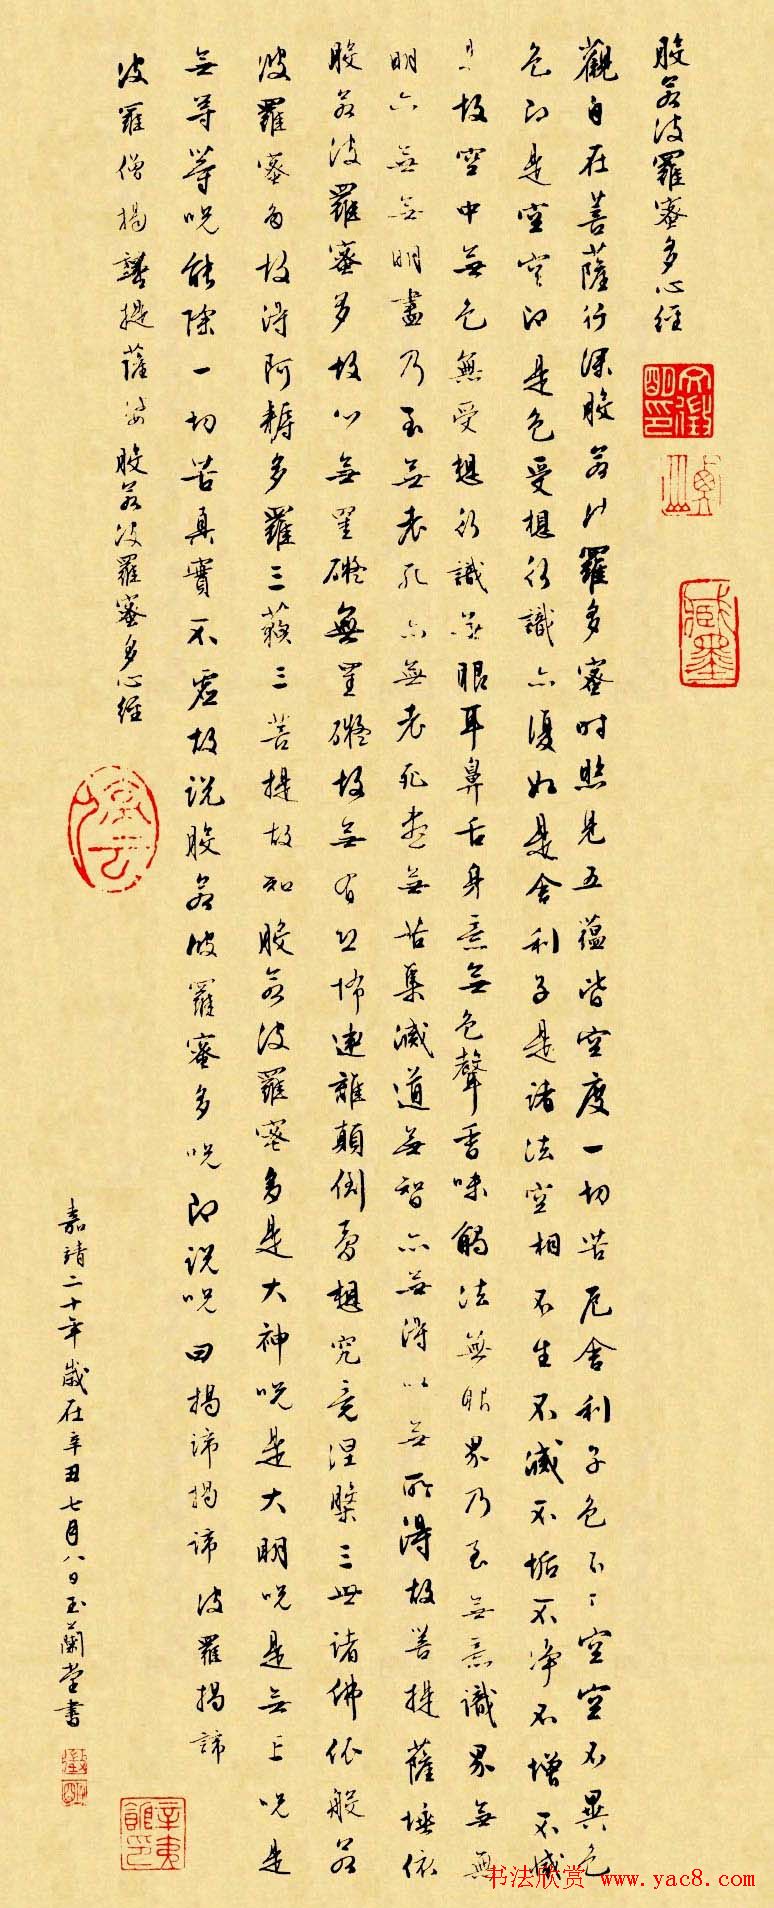 般若波羅蜜多心經
觀自在菩薩行深般若波羅多蜜時照見五蘊皆空度一切苦厄舍利子色不空空不異色
色即是空空即是色受想行識亦復如是舍利子是諸法空相不生不滅不垢不淨不增不減
是故空中無色無受想行識無眼耳鼻舌身意無色聲香味觸法無眼界乃至無意識界無無
明亦無無明盡乃至無老死亦無老死盡無苦集滅道無智亦無得以無所得故菩提薩埵依
般若波羅蜜多故心無罣礙無罣礙故無有恐怖遠離顛倒夢想究竟涅槃三世諸佛依般若
波羅蜜多故得阿耨多羅三藐三菩提故知般若波羅蜜多是大神咒是大明咒是無上咒是
無等等咒能除一切苦真實不虛故說般若波羅蜜多咒即說咒曰揭諦揭諦波羅揭諦
波羅僧揭諦提薩婆般若波羅蜜多心經
嘉靖二十年歲在辛丑七月八日玉蘭堂書
文徵明印
停雲
徵明
辛夷館印
书法欣赏 www.yac8.com